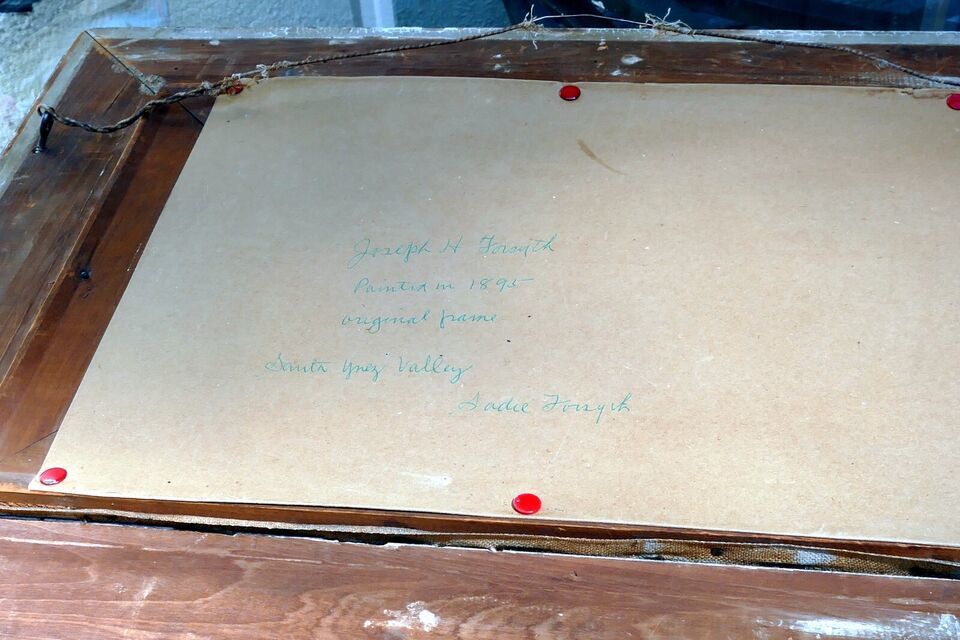 Joseph H Forsyth
Painted in 1895
original frame
Santa Ynez Valley
Sadie Forsyth